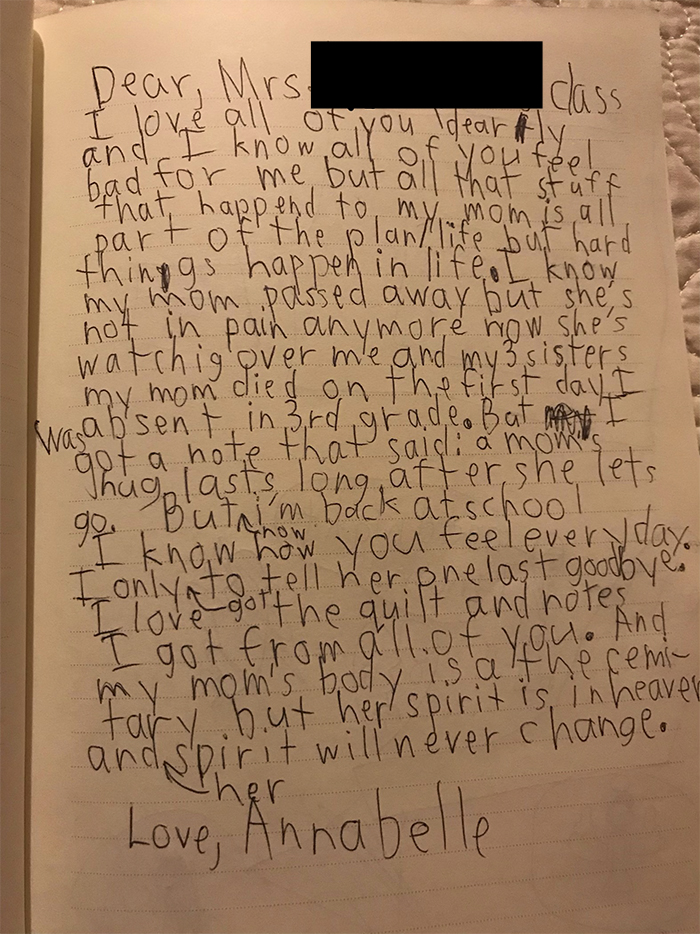 Dear, Mrs. class
I love all of you dearly
and I know all of you feel
bad for me but all that stuff
that happend to my mom is all
part of the plan/life but hard
things happen in life. I know
my mom passed away but she's
not in pain anymore now she's
watchig over me and my 3 sisters
my mom died on the first day I
was absent in 3rd grade. But I
got a note that said: a mom's
hug lasts long after she lets
go. But now i'm back at school
I know how you feel everyday.
I only got to tell her one last goodbye.
I love the quilt and notes
I got from all of you. And
my mom's body is a the cemi-
tary but her spirit is in heaven
and her spirit will never change.
Love, Annabelle